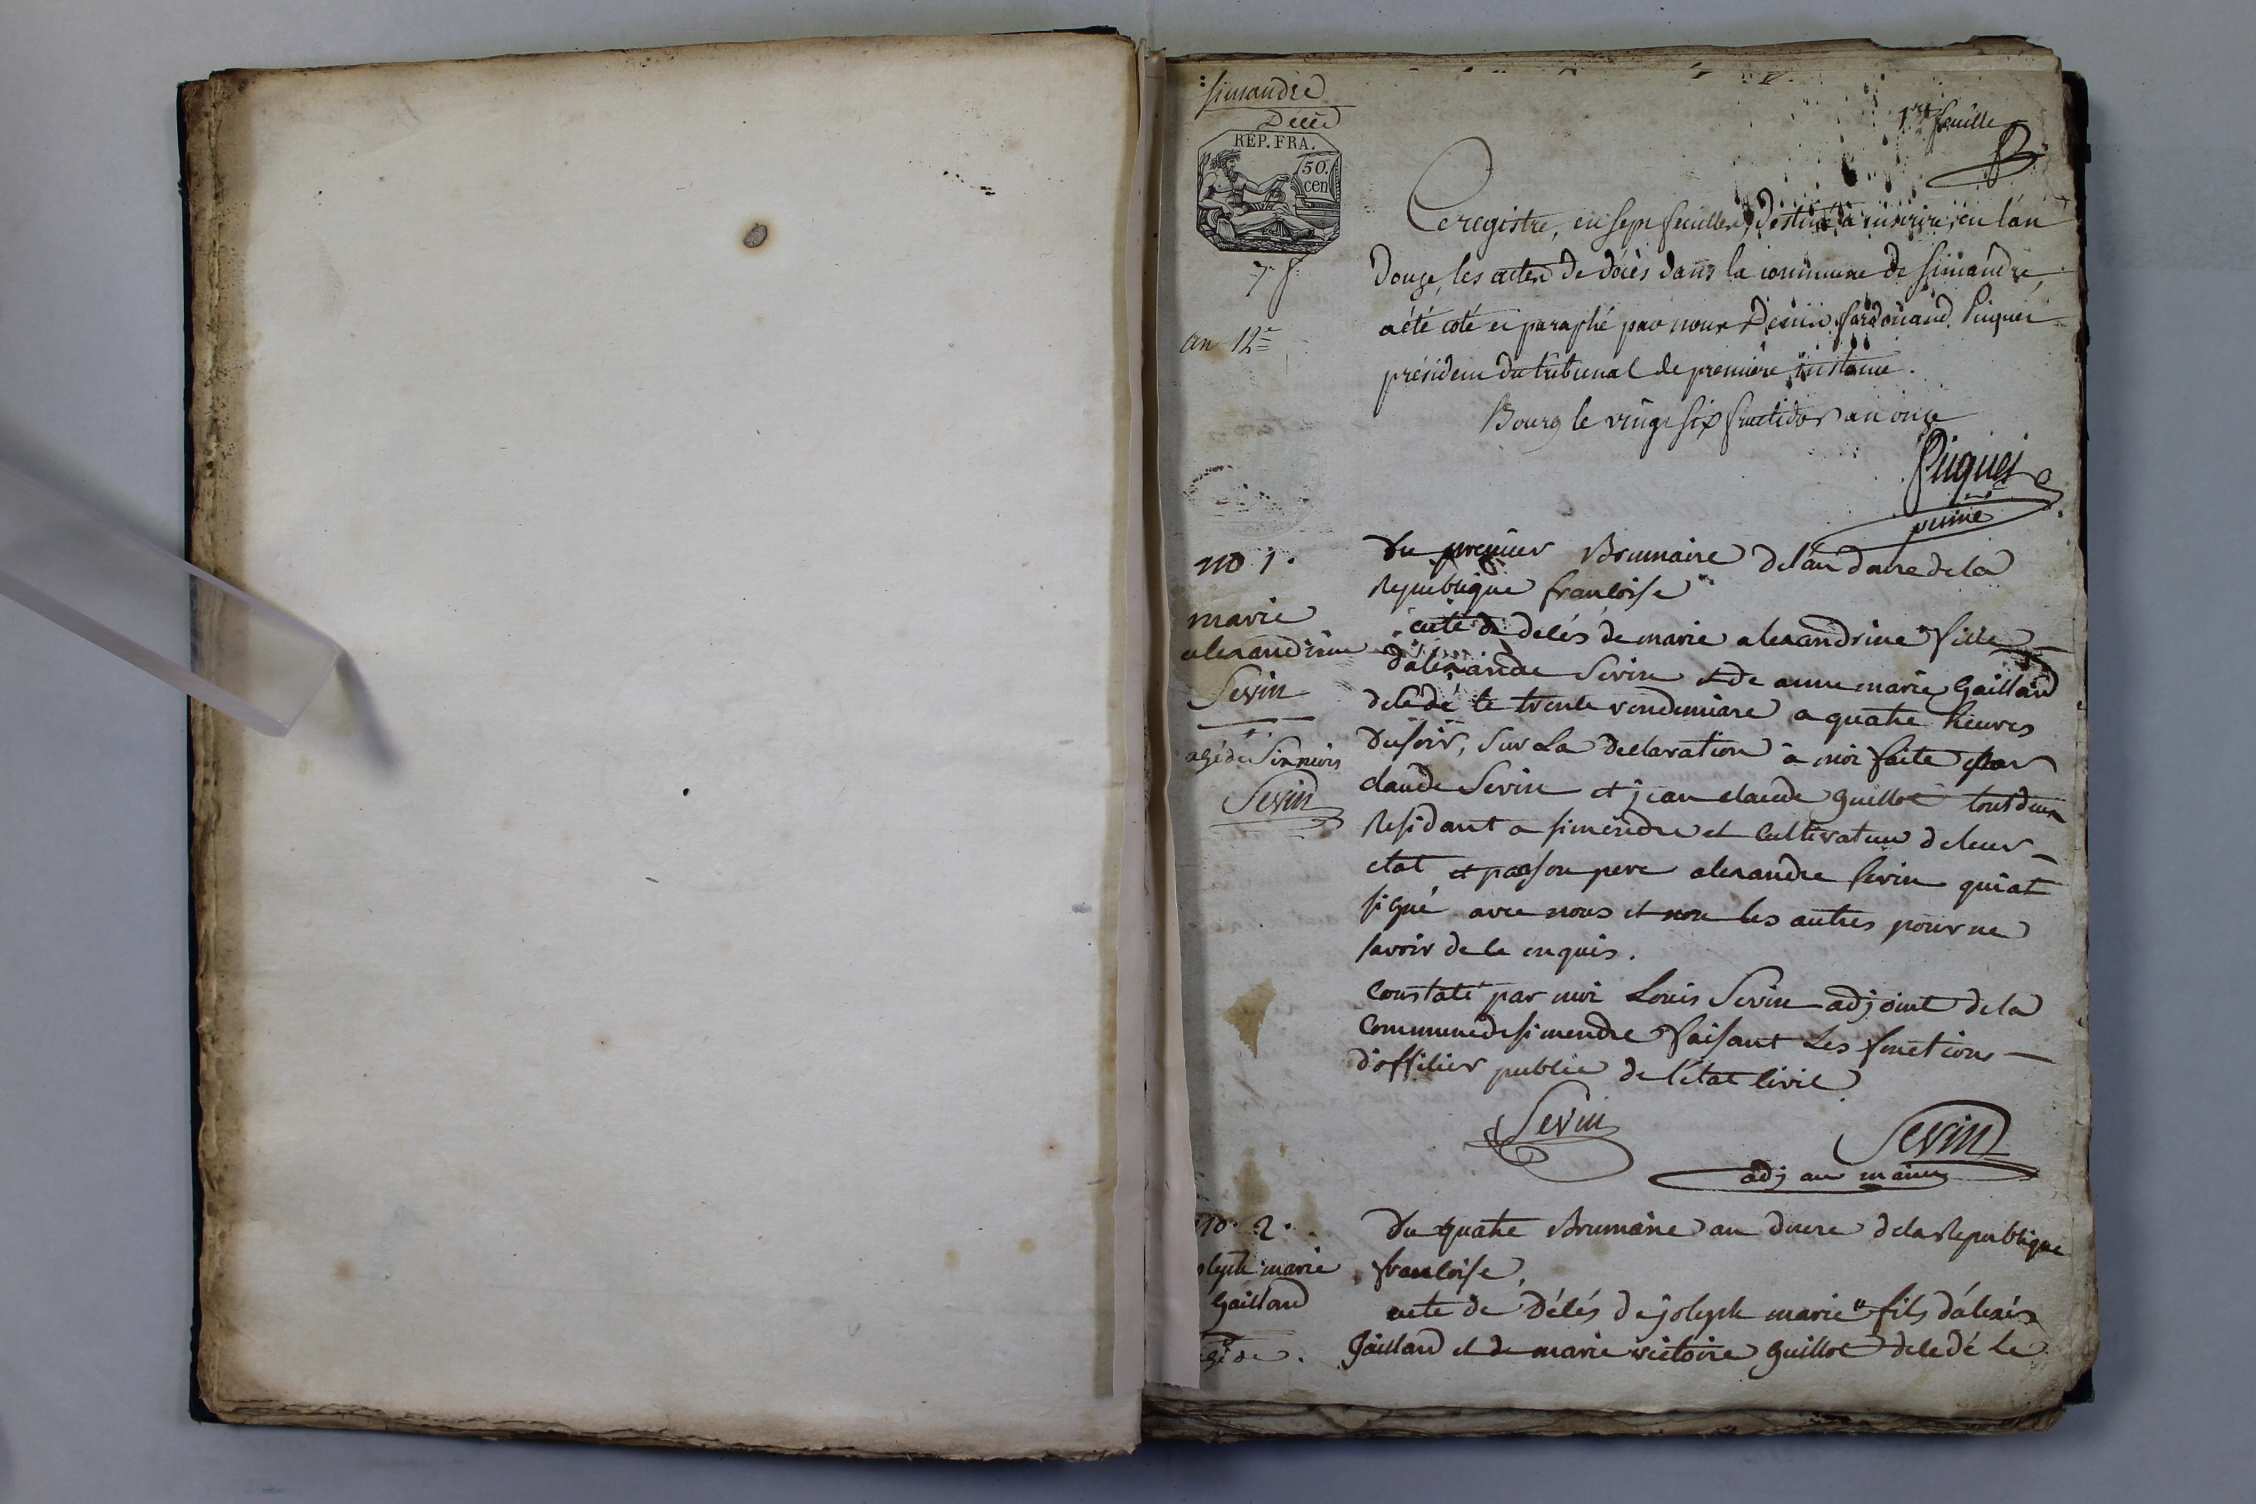 Simandre
Décès
1re feuille
REP. FRA.
50.
cen
7 f.
an 12e
Ce registre, en sept feuilles, destiné à inscrire, en l'an
Douze, les actes de décès dans la commune de Simandre,
a été coté et paraphé par nous Denis ferdinand Piquet
président du tribunal de première instance.
Bourg le vingt six fructidor an onze
Piquet
no 1.
marie
alexandrine
Sevin
agé de Six mois
Sevin
Du premier Brumaire de l'an douze de la
Republique francoise
acte de délés de marie alexandrine fille
d'alexandre Sevin et de anne marie Gaillard
delédé le trente vendemiare a quatre heures
du soir, sur la declaration à moi faite par
claude Sevin et jean claude guillot tous deux
Residant a simendre et cultivateur de leur
etat et par son pere alexandre sevin qui at
signé avec nous et non les autres pour ne
savoir de le enquis.
Constaté par moi Louis Sevin adjoint de la
commune de simendre faisant les fonctions
d'offilier public de l'état livil
Sevin
Sevin
adj au maire
no. 2.
joseph marie
Gaillard
agé de.
Du quatre Brumaire an douze de la Republique
francoise,
acte de délés de joseph marie fils d'alexis
Gaillard et de marie victoire guillot deledé le